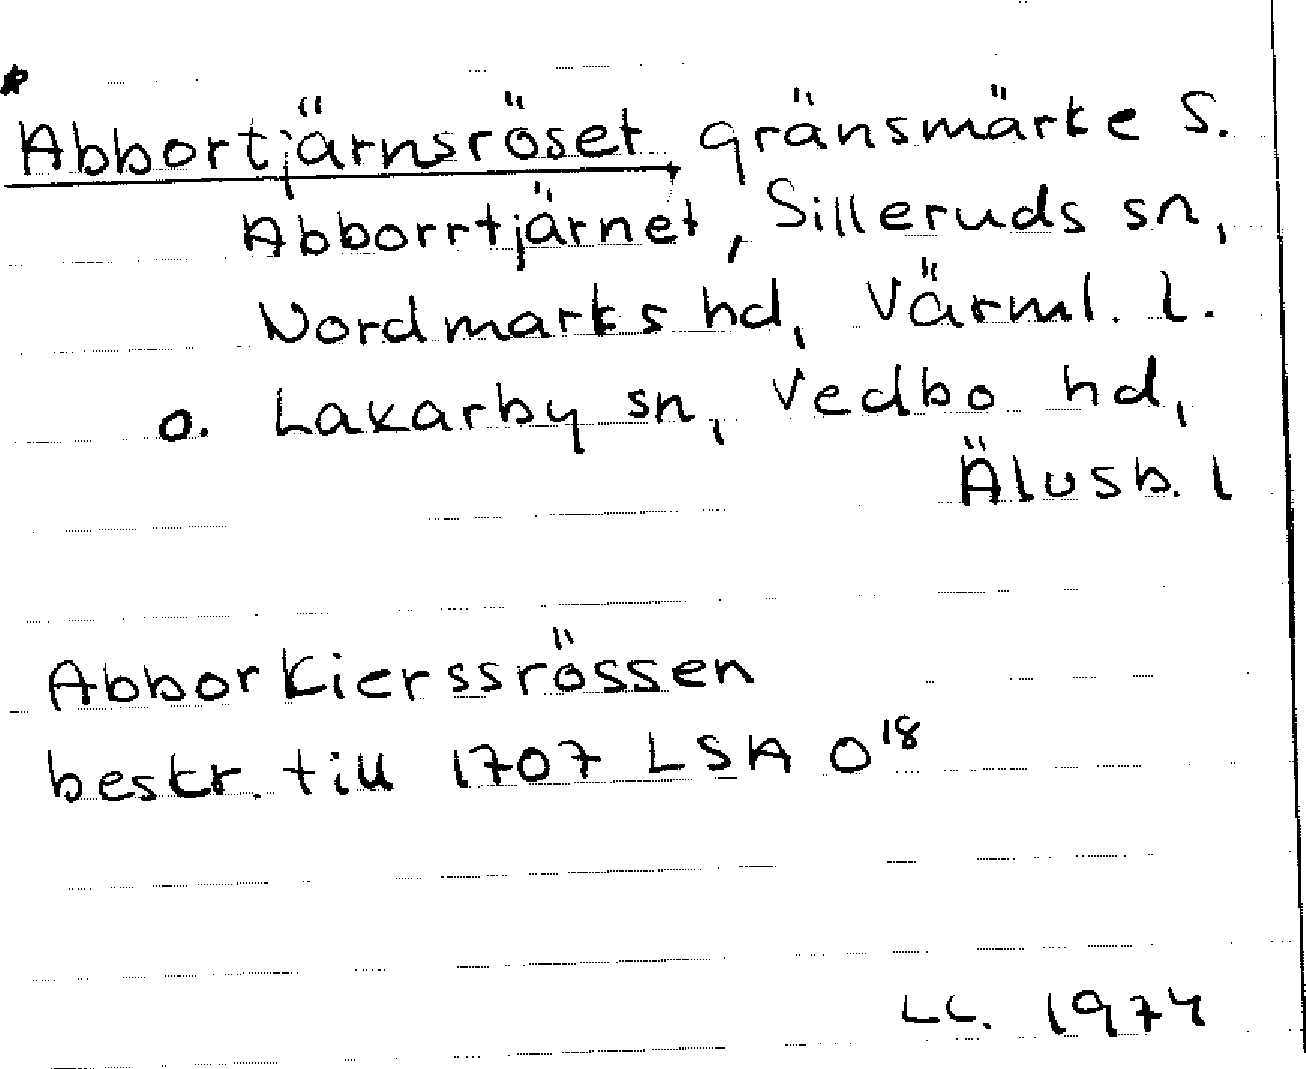 *
Abbortjärnsröset gränsmärke S.
Abborrtjärnet, Silleruds sn,
Nordmarks hd, Värml. l.
o. Lakarby sn, Vedbo hd,
Älvsb. l
Abborkierssrössen
bestr. till 1707 LSA O18
LL. 1974